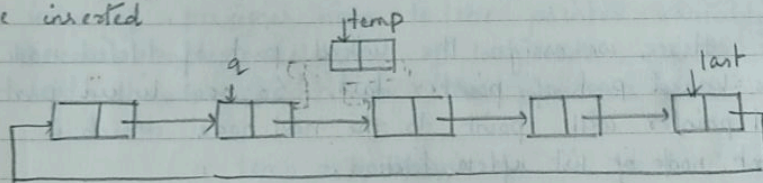 e inserted
temp
q
last